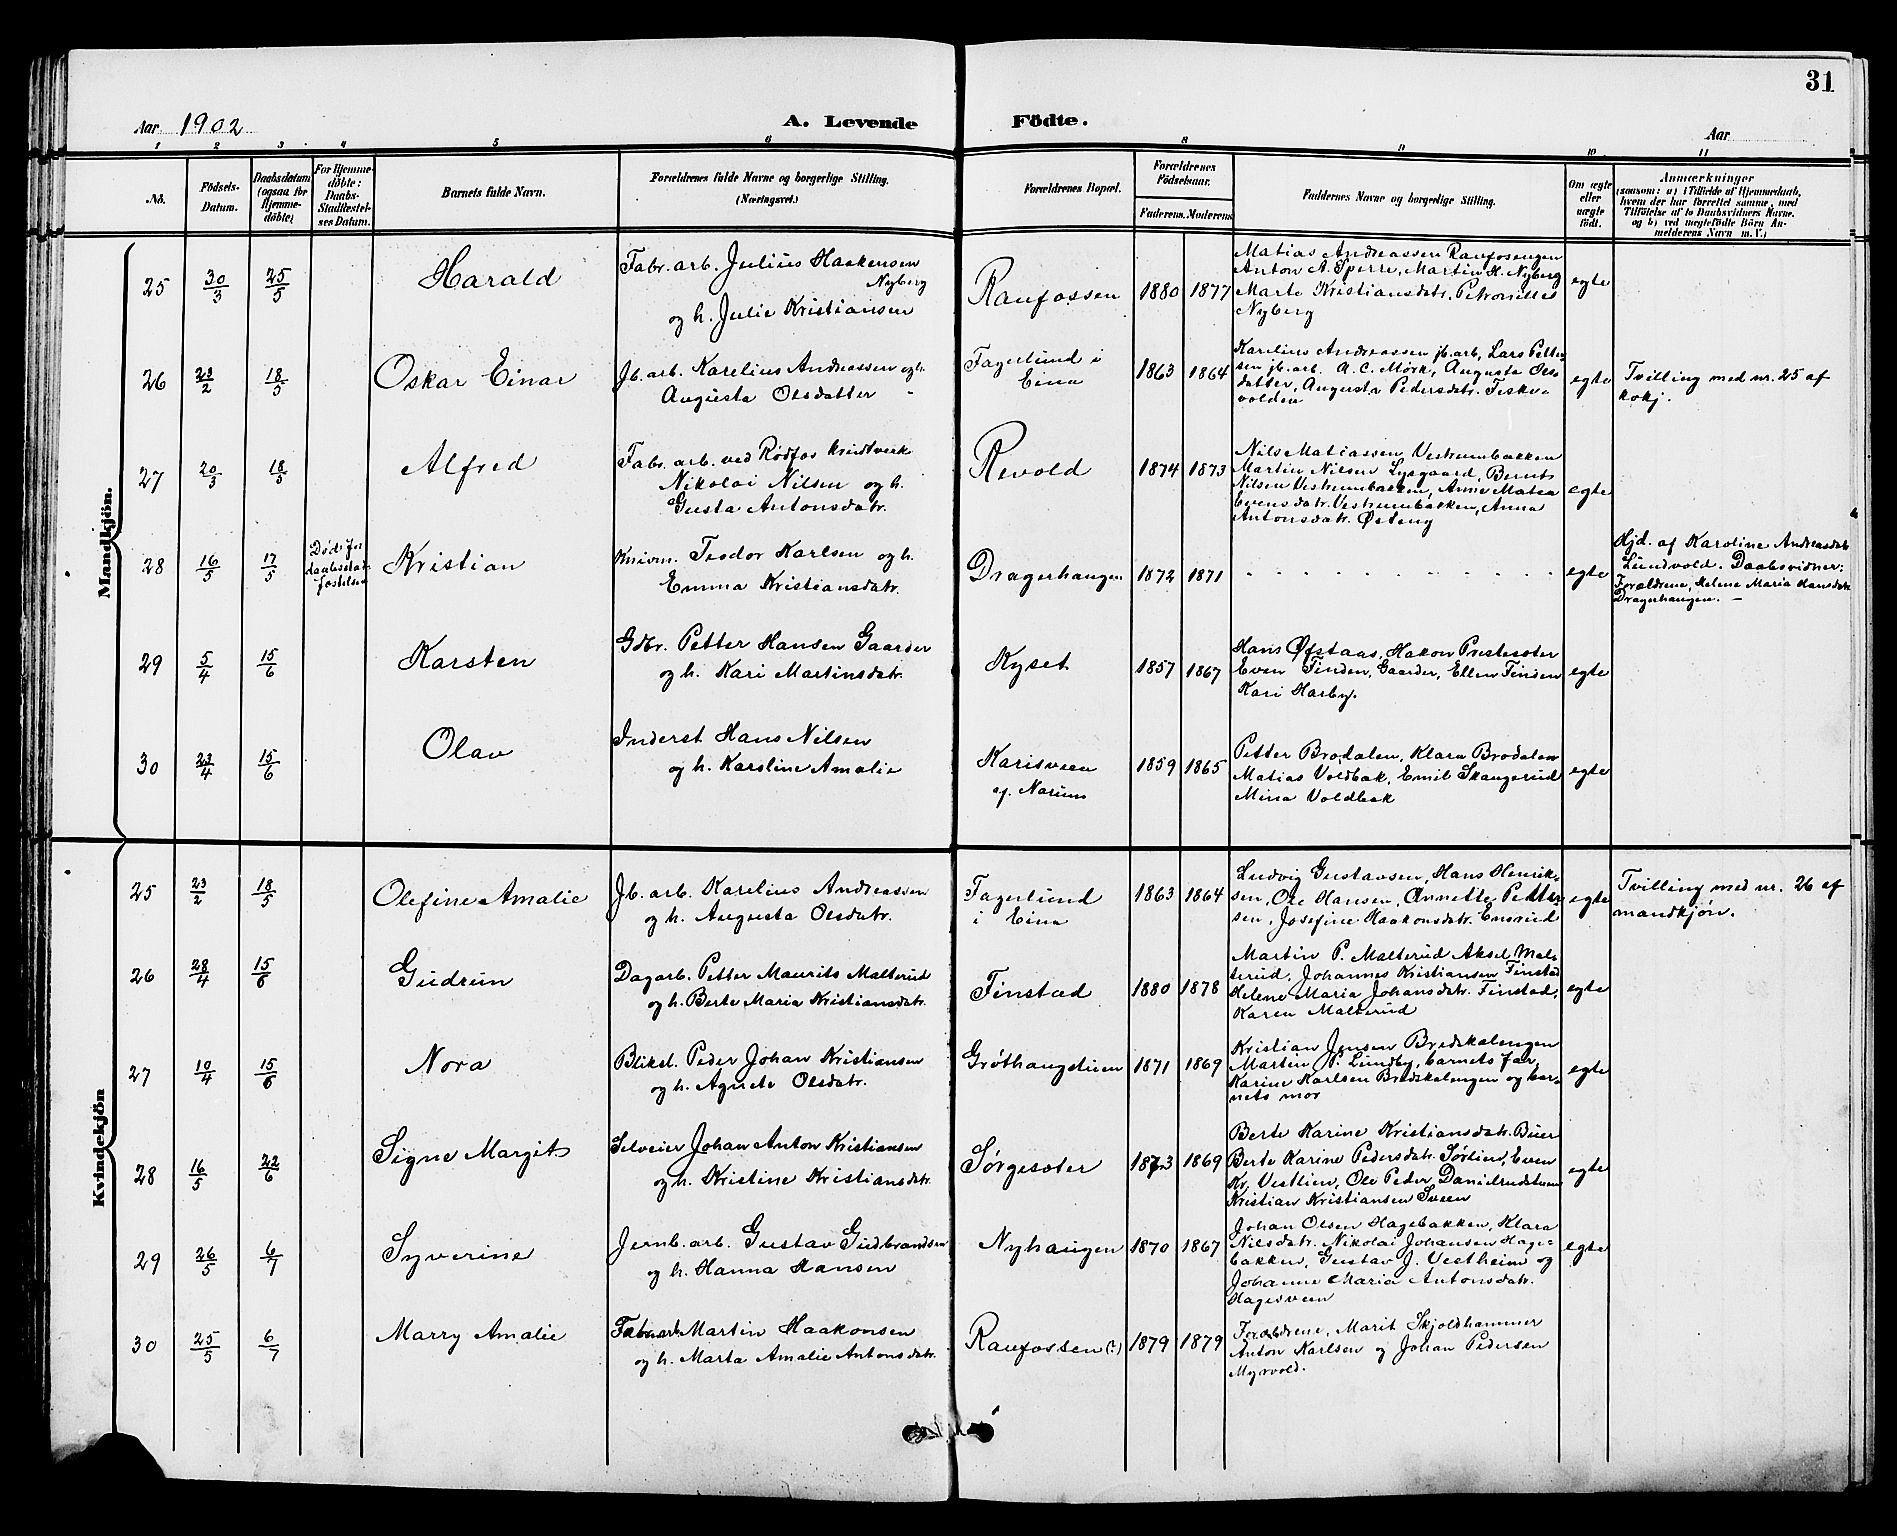 31
Aar 1902
A. Levende Födte.
Aar
1 2 3 4 5 6 8 9 10 11
No.
Födsels-
Datum.
Daabsdatum
(ogsaa for
Hjemme-
döbte)
For Hjemme-
döbte:
Daabs-
Stadfæstel-
ses Datum.
Barnets fulde Navn.
Forældrenes fulde Navne og borgerlige Stilling.
(Næringsvei.)
Forældrenes Bopæl.
Forældrenes
Födselsaar.
Faderens. Moderens.
Faddernes Navne og borgerlige Stilling.
Om ægte
eller
uægte
født.
Anmærkninger
(saasom: a) i Tilfælde af Hjemmedaab,
hvem der har forrettet samme, med
Tilföielse af to Daabsvidners Navne.
og b) ved uægtefödte Börn An-
melderens Navn m. V.)
Mandkjön.
25 30/3 25/5 Harald
Fabr. arb. Julius Haakensen
Nyberg
og h. Julie Kristiansen
Raufossen 1880 1877
Matias Andreassen Raufosengen
Anton A. Sperre, Martin H. Nyberg
Marte Kristiansdatr. Petronille
Nyberg
egte
26 23/2 18/5 Oskar Einar
Jb. arb. Karelius Andreassen og h.
Augusta Olsdatter
Fagerlund i
Eina
1863 1864
Karelius Andreassen jb. arb, Lars Petter-
sen jb. arb. A. C. Mörk, Augusta Ols-
datter, Augusta Pedersdatr. Feske-
volden
egte
Tvilling med nr. 25 af
kvkj.
27 20/3 18/5 Alfred
Fabr. arb. ved Rødfos krudtverk
Nikolai Nilsen og h.
Gusta Antonsdatr.
Revold 1874 1873
Nils Matiassen Vestrumbakken
Martin Nilsen Lysgaard, Bernt
Nilsen Vestrumbakken, Anne Matea
Evensdatr. Vestrumbakken, Anna
Antonsdatr. Østeng
egte
28 16/5 17/5
Død før
daabsstad-
fæstelse
Kristian
Knivm. Teodor Karlsen og h.
Emma Kristiansdatr.
Dragerhaugen 1872 1871
egte
Hjd. af Karoline Andreasdatr
Lundvold. Daabsvidner:
Forældrene, Helene Maria Hansdatr
Dragerhaugen. —
29 5/4 15/6 Karsten
Gdbr. Petter Hansen Gaarder
og h. Kari Martinsdatr.
Kyset 1857 1867
Hans Øfstaas, Hakon Prestesæter
Even Finden, Gaarder, Ellen Finden
Kari Harby.
egte
30 23/4 15/6 Olav
Inderst Hans Nilsen
og h. Karoline Amalie
Karisveen
ej. Narum
1859 1865
Petter Brodalen, Klara Brodalen
Matias Voldbak, Emil Skangerud
Mina Voldbak
egte
Kvindekjön
25 23/2 18/5 Olefine Amalie
Jb. arb. Karelius Andreassen
og h. Augusta Olsdatr.
Fagerlund
i Eina
1863 1864
Ludvig Gustavsen, Hans Henrik-
sen, Ole Hansen, Annette Petter-
sen, Josefine Haakonsdatr. Ensrud
egte
Tvilling med nr. 26 af
mandkjøn.
26 28/4 15/6 Gudrun
Dagarb. Petter Maurits Malterud
og h. Berte Maria Kristiansdatr.
Finstad 1880 1878
Martin P. Malterud Aksel Mal-
terud, Johannes Kristiansen Finstad
Helene Maria Johansdatr. Finstad,
Karen Malterud
egte
27 10/4 15/6 Nora
Bliksl. Peder Johan Kristiansen
og h. Agnete Olsdatr.
Grøthaugstuen 1871 1869
Kristian Jensen Bredskalengen
Martin N. Lundby, barnets far,
Karine Karlsen Bredskalengen og bar-
nets mor
egte
28 16/5 22/6 Signe Margit
Selveier Johan Anton Kristiansen
og h. Kristine Kristiansdatr.
Sørgesæter 1873 1869
Berte Karine Kristiansdatr. Buer
Berte Karine Pedersdatr. Sørlien, Even
Kr. Vestlien, Ole Peder Danielrudstuen
Kristian Kristiansen Sveen
egte
29 26/5 6/7 Syverine
Jernb. arb. Gustav Gudbrandsen
og h. Hanna Hansen
Nyhaugen 1870 1867
Johan Olsen Hagebakken, Klara
Nilsdatr. Nikolai Johansen Hage-
bakken, Gustav J. Vestheim og
Johanne Maria Antonsdatr.
Hagesveen
egte
30 25/5 6/7 Marry Amalie
Fabr. arb. Martin Haakonsen
og h. Marta Amalie Antonsdatr.
Raufossen (?) 1879 1879
Forældrene, Marit Skjoldhammer
Anton Karlsen og Johan Pedersen
Myrvold.